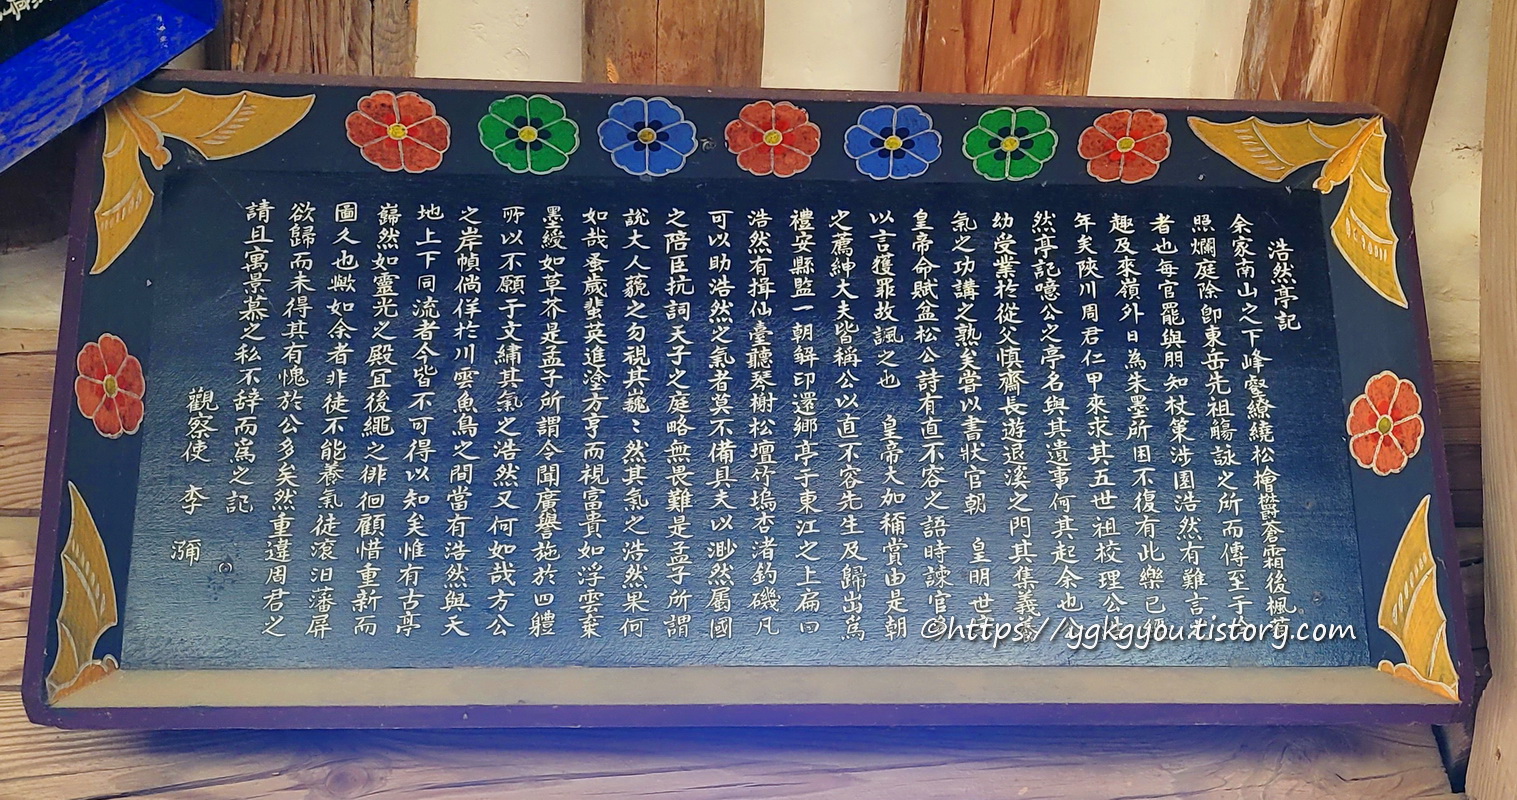 浩然亭記
余家南山之下峰壑繚繞松檜欝蒼霜後楓
照爛庭除卽東岳先祖觴詠之所而傳至于
者也每官罷與朋知杖策涉園浩然有難言
趣及來嶺外日為朱墨所困不復有此樂已
年矣陜川周君仁甲來求其五世祖校理公
然亭記噫公之亭名與其遺事何其起余也
幼受業於從父愼齋長遊退溪之門其集義養
氣之功講之熟矣嘗以書狀官朝　皇明世
皇帝命賦盆松公詩有直不容之語時諫官
以言獲罪故諷之也　皇帝大加稱賞由是朝
之薦紳大夫皆稱公以直不容先生及歸出爲
禮安縣監一朝解印還鄉亭于東江之上扁曰
浩然有揖仙臺聽琴榭松壇竹塢杏渚釣磯凡
可以助浩然之氣者莫不備具夫以渺然屬國
之陪臣抗詞天子之庭略無畏難是孟子所謂
說大人藐之勿視其巍〻然其氣之浩然果何
如哉蚤歲蜚英進塗方亨而視富貴如浮雲棄
墨綬如草芥是孟子所謂令聞廣譽施於四軆
所以不願于文繡其氣之浩然又何如哉方公
之岸幘倘佯於川雲魚鳥之間當有浩然與天
地上下同流者今皆不可得以知矣惟有古亭
巋然如靈光之殿冝後繩之徘徊顧惜重新而
圖久也歟如余者非徒不能養氣徒滾汨藩屏
欲歸而未得其有愧於公多矣然重違周君之
請且寓景慕之私不辞而爲之記
觀察使　李　瀰
©https://ygkgyou.tistory.com